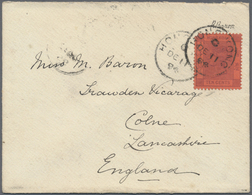 HONG KONG
DE 11
Miss M. Baron
Trawden Vicarage
Colne
Lancashire
England